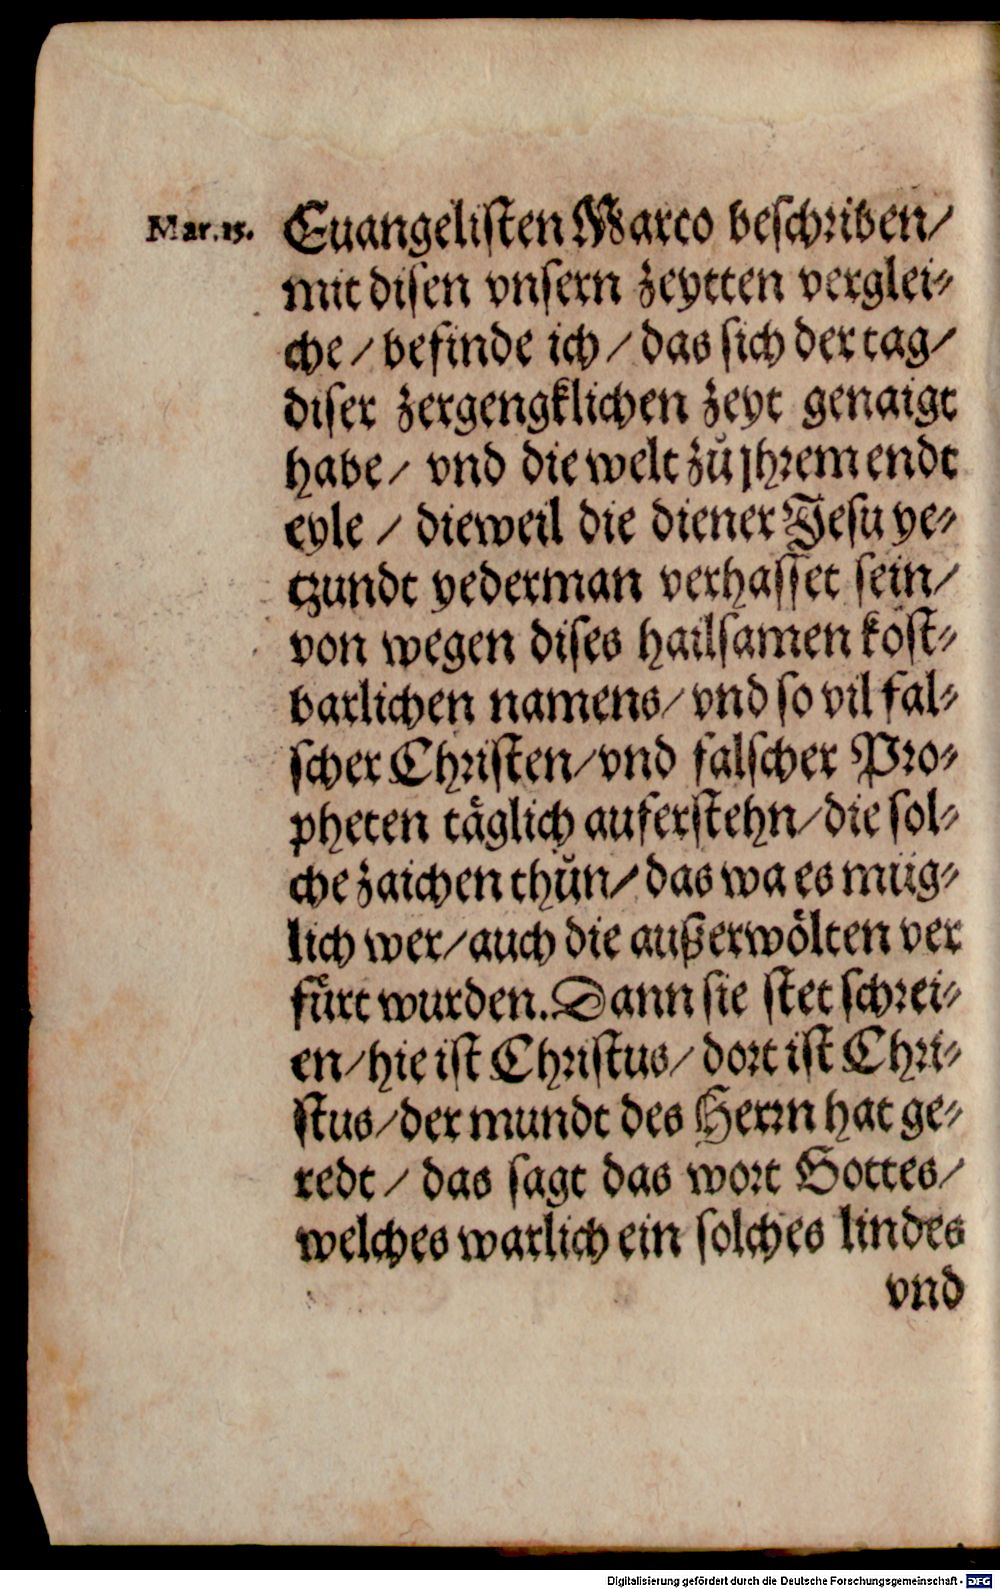 Mar.15.
Euangelisten Marco beschriben/
mit disen vnsern zeytten verglei⸗
che / befinde ich / das sich der tag/
diser zergengklichen zeyt genaigt
habe / vnd die welt zů jhrem endt
eyle / dieweil die diener Jesu ye⸗
tzundt yederman verhasset sein/
von wegen dises hailsamen kost⸗
barlichen namens/ vnd so vil fal⸗
scher Christen/ vnd falscher Pro⸗
pheten täglich auferstehn/ die sol⸗
che zaichen thůn/ das wa es müg⸗
lich wer/ auch die außerwölten ver
fürt wurden. Dann sie stet schrei⸗
en/ hie ist Christus/ dort ist Chri⸗
stus/ der mundt des Herrn hat ge⸗
redt / das sagt das wort Gottes/
welches warlich ein solches lindes
vnd
Digitalisierung gefördert durch die Deutsche Forschungsgemeinschaft - DFG